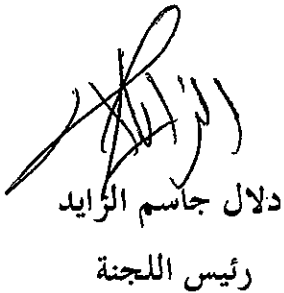 دلال جاسم الزايد
رئيس اللجنة